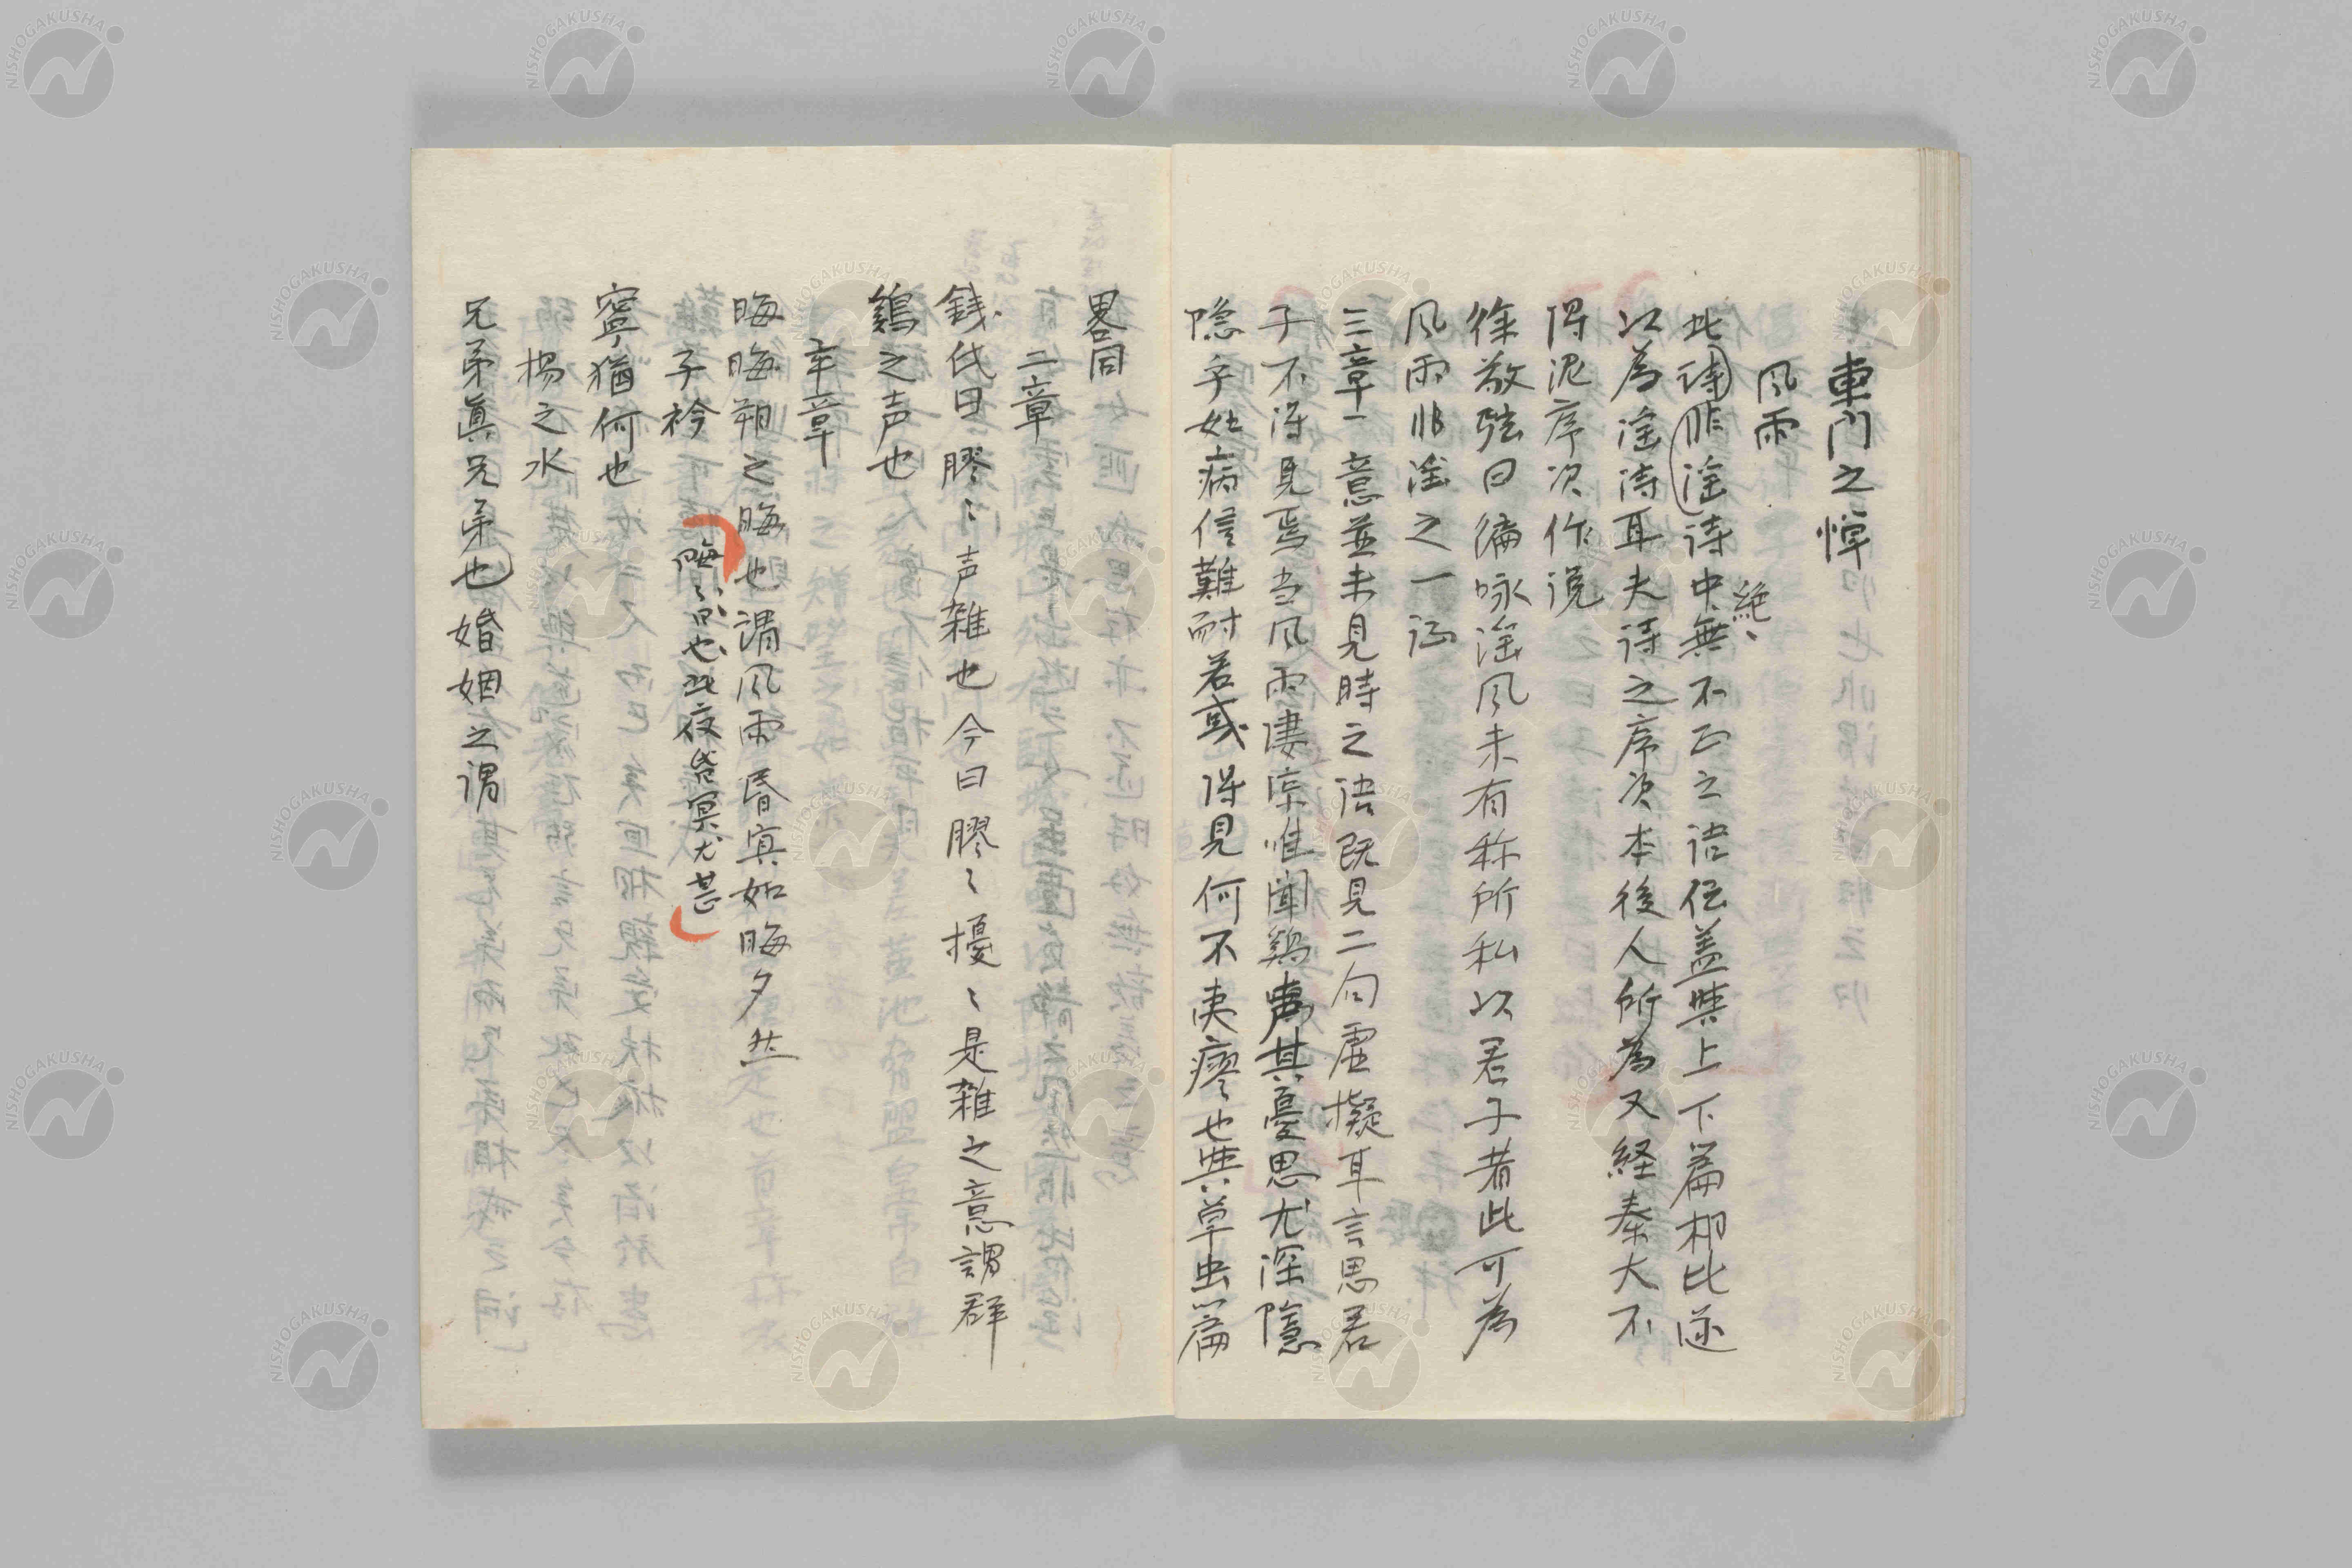 東門之墠
風雨
此詩非淫詩中絶無不正之語伝蓋與上下篇相比逐
以為淫詩耳夫詩之序次本後人所為又経秦火不
得泥序次作説
徐敬弦曰徧咏淫風未有称所私以君子者此可為
風雨非淫之一証
三章一意並未見時之語既見二句虚擬耳言思君
子不得見焉当風雨凄凉唯聞鶏声其憂思尤深隠
隠乎如病信難耐若或得見何不夷瘳也與草虫篇
畧同
二章
銭氏曰膠〻声雑也今曰膠〻擾〻是雑之意謂群
鶏之声也
卒章
晦晦朔之晦也謂風雨昏冥如晦夕然
晦〻昏也比夜昏冥尤甚
子衿
寧猶何也
揚之水
兄弟眞兄弟也婚姻之謂
NISHOGAKUSHA